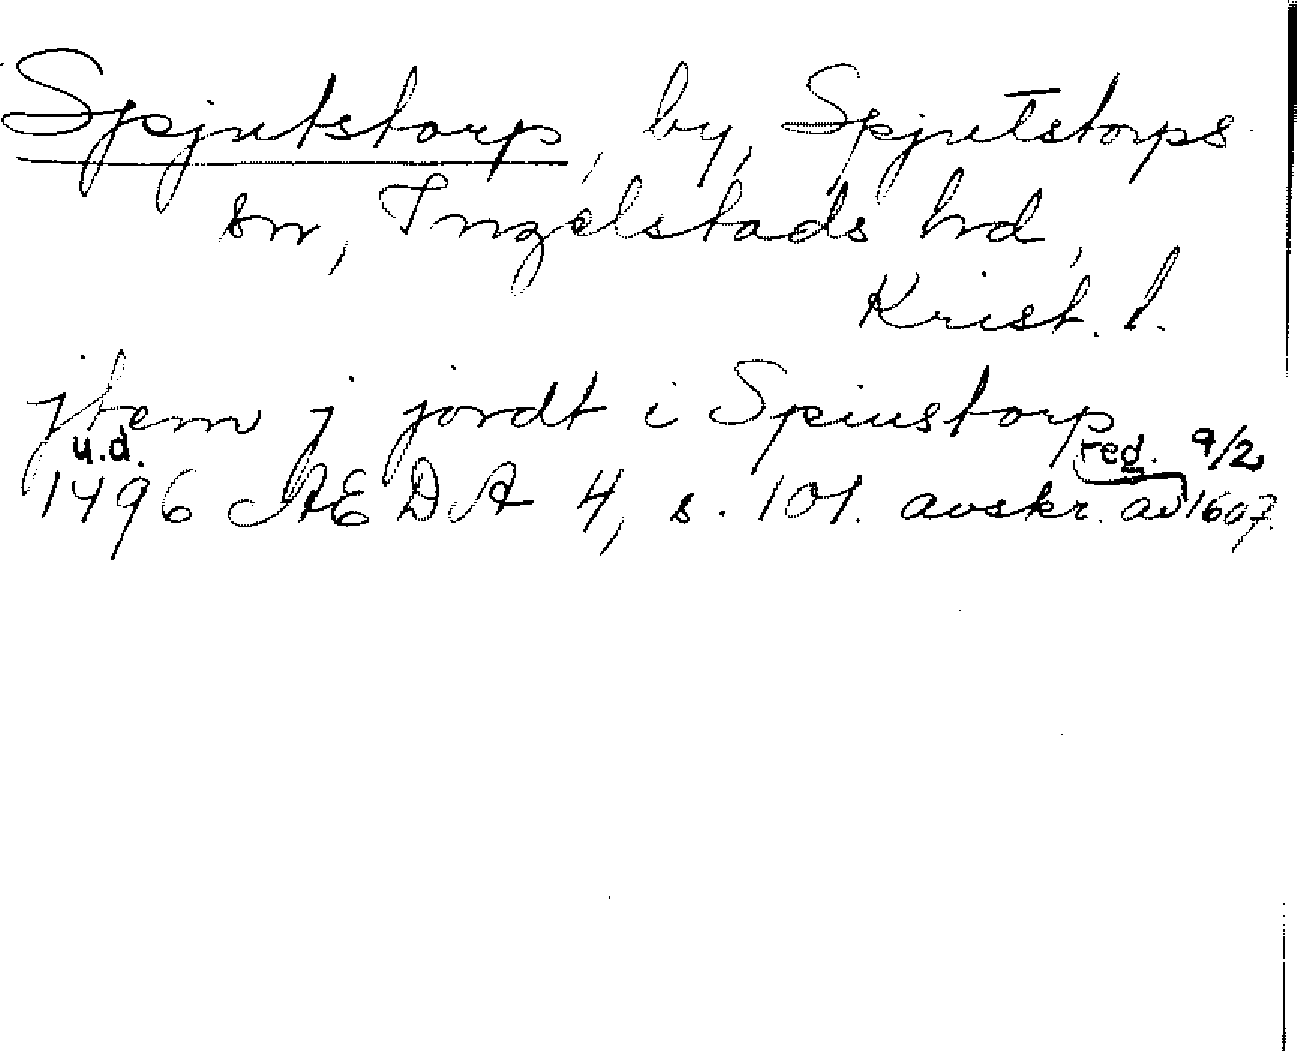 Spjutstorp, by, Spjutstorps
sn, Ingelstads hd,
Krist. l.
jtem j jordt i Spiustorp
u.d. reg. 9/2
1496 ÆDA 4, s. 101. avskr. av 1607.